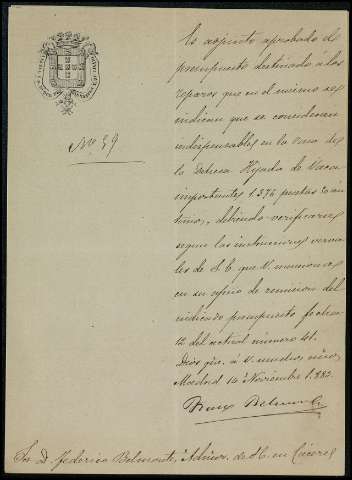 Nº. 39
Es adjunto aprobado el
presupuesto destinado á los
reparos que en el mismo se
indican que se consideran
indispensables en la casa de
la Dehesa Hijada de Vaca
importantes 1.376 pesetas
debiendo verificarse
segun las instrucciones verva-
les de S. E. que V. menciona
en su oficio de remision del
indicado presupuesto fecha
12 del actual número 41.
Dios gue. á V. muchos años.
Madrid 14 Noviembre 1.882.
Belmonte
Sr. D. Federico Belmonte, Admor. de S. E. en Cáceres